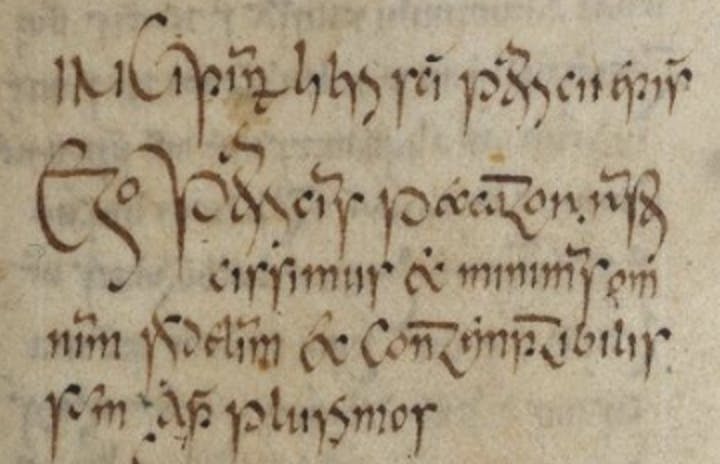 INCipiūt libri sc̄i patricii epis̄
Ego patricius peccator rusti
cissimus & minimus om
nium fidelium & contemptibilis
sum ap̄ plurimos